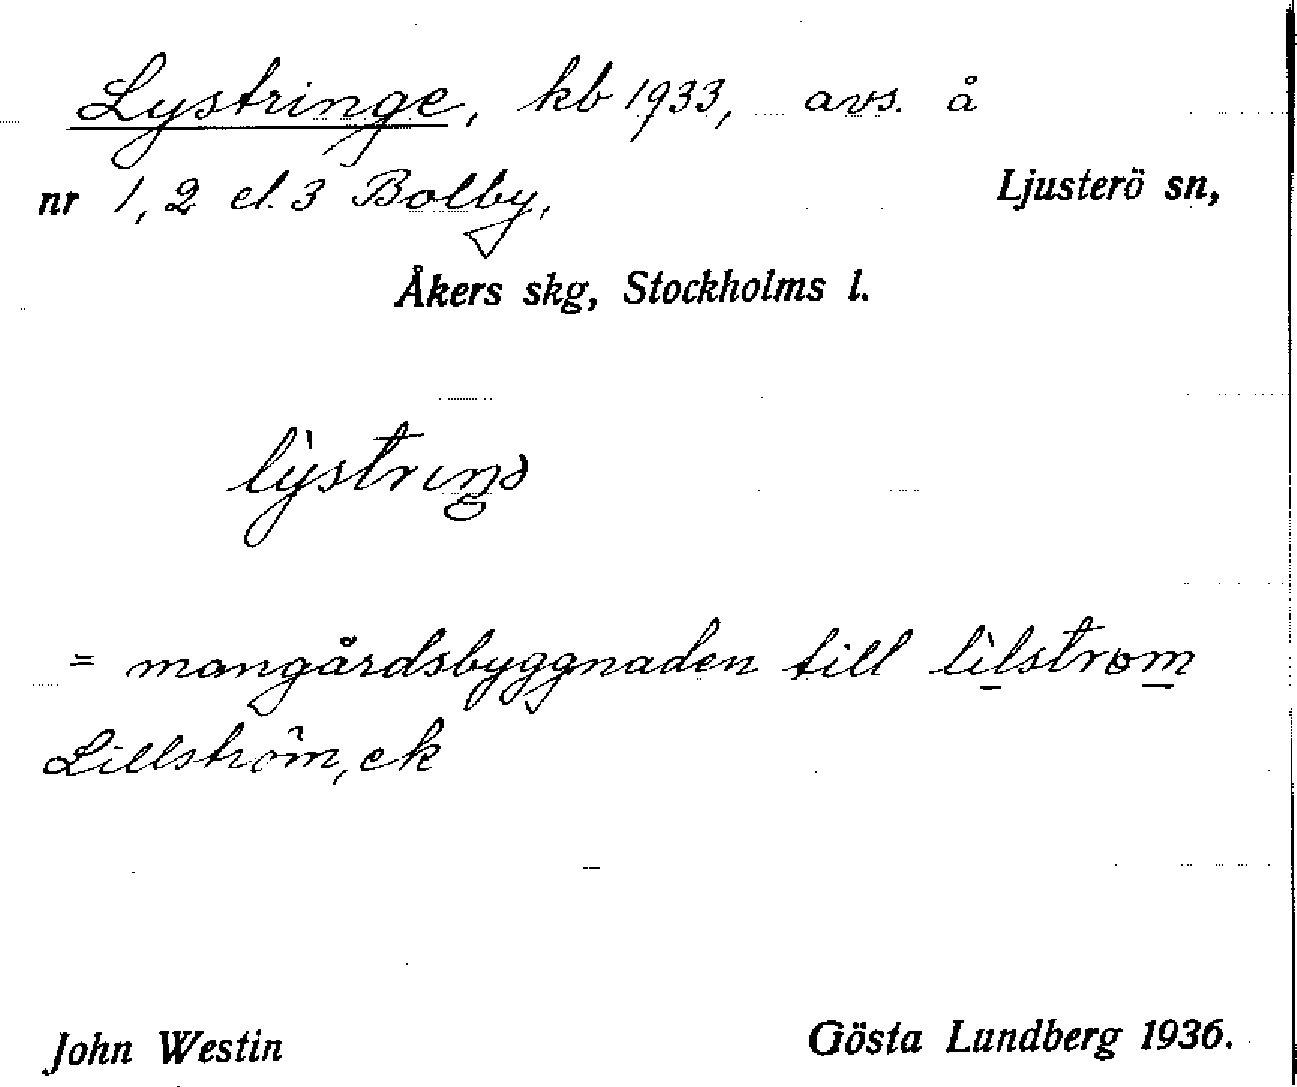 Lystringe, kb 1933, avs. å
nr 1, 2 el. 3 Bolby, Ljusterö sn,
Åkers skg, Stockholms l.
lỳstrıŋə
= mangårdsbyggnaden till lìlstrøm
Lillström, ek
John Westin Gösta Lundberg 1936.